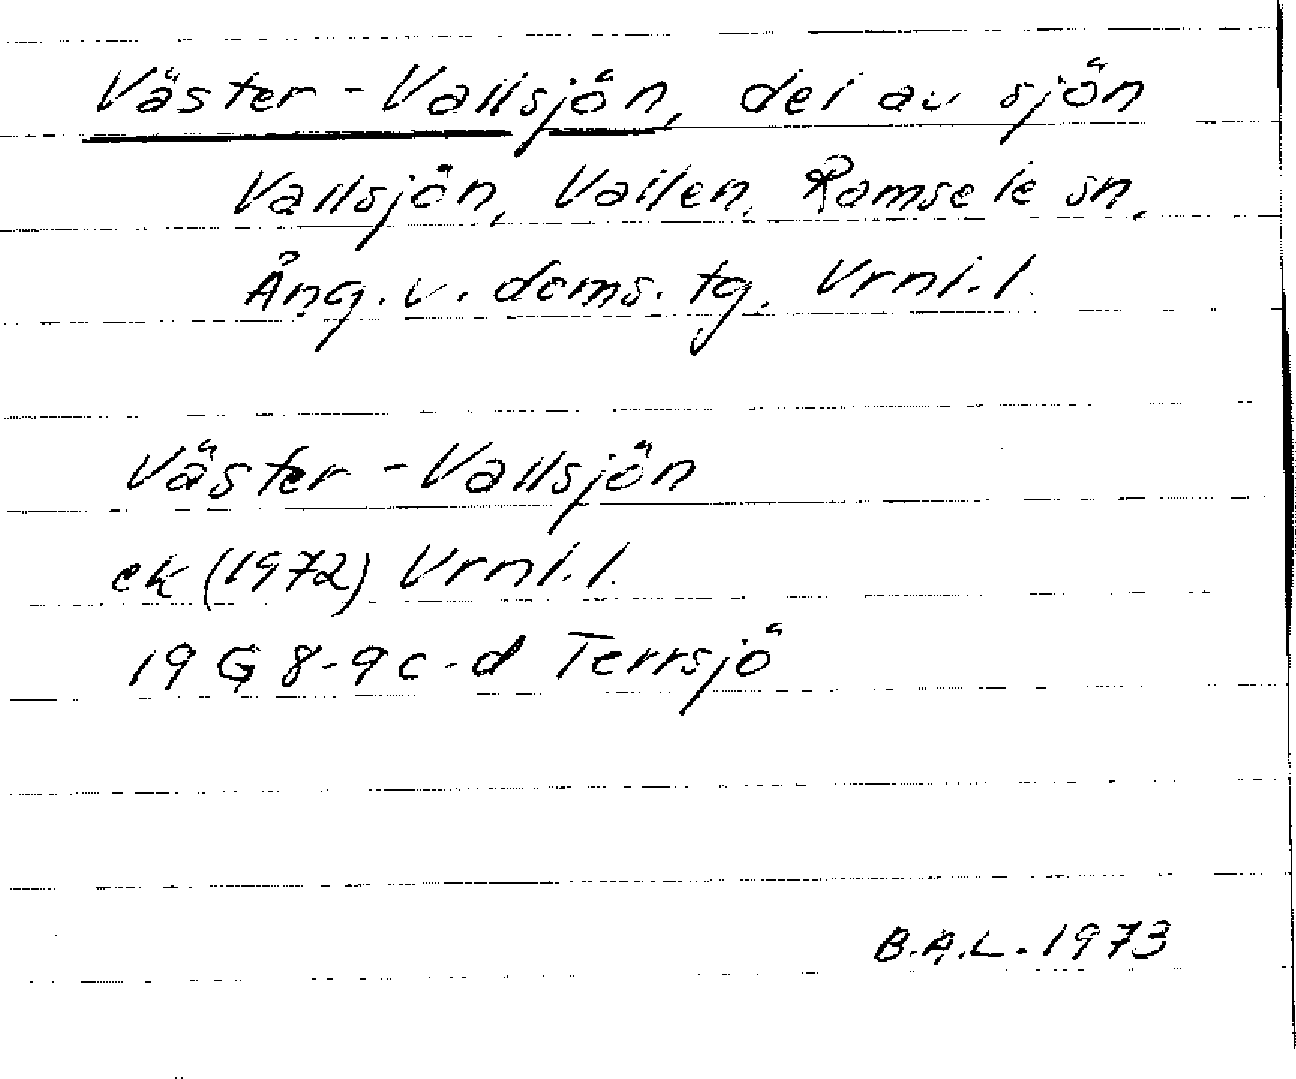 Väster-Vallsjön, del av sjön
Vallsjön, Vallen, Ramsele sn,
Ång. v. doms. tg. Vrnl. l.
Väster-Vallsjön
ek (1972) Vrnl. l.
19 G 8-9 c-d Terrsjö
B.A.L. 1973